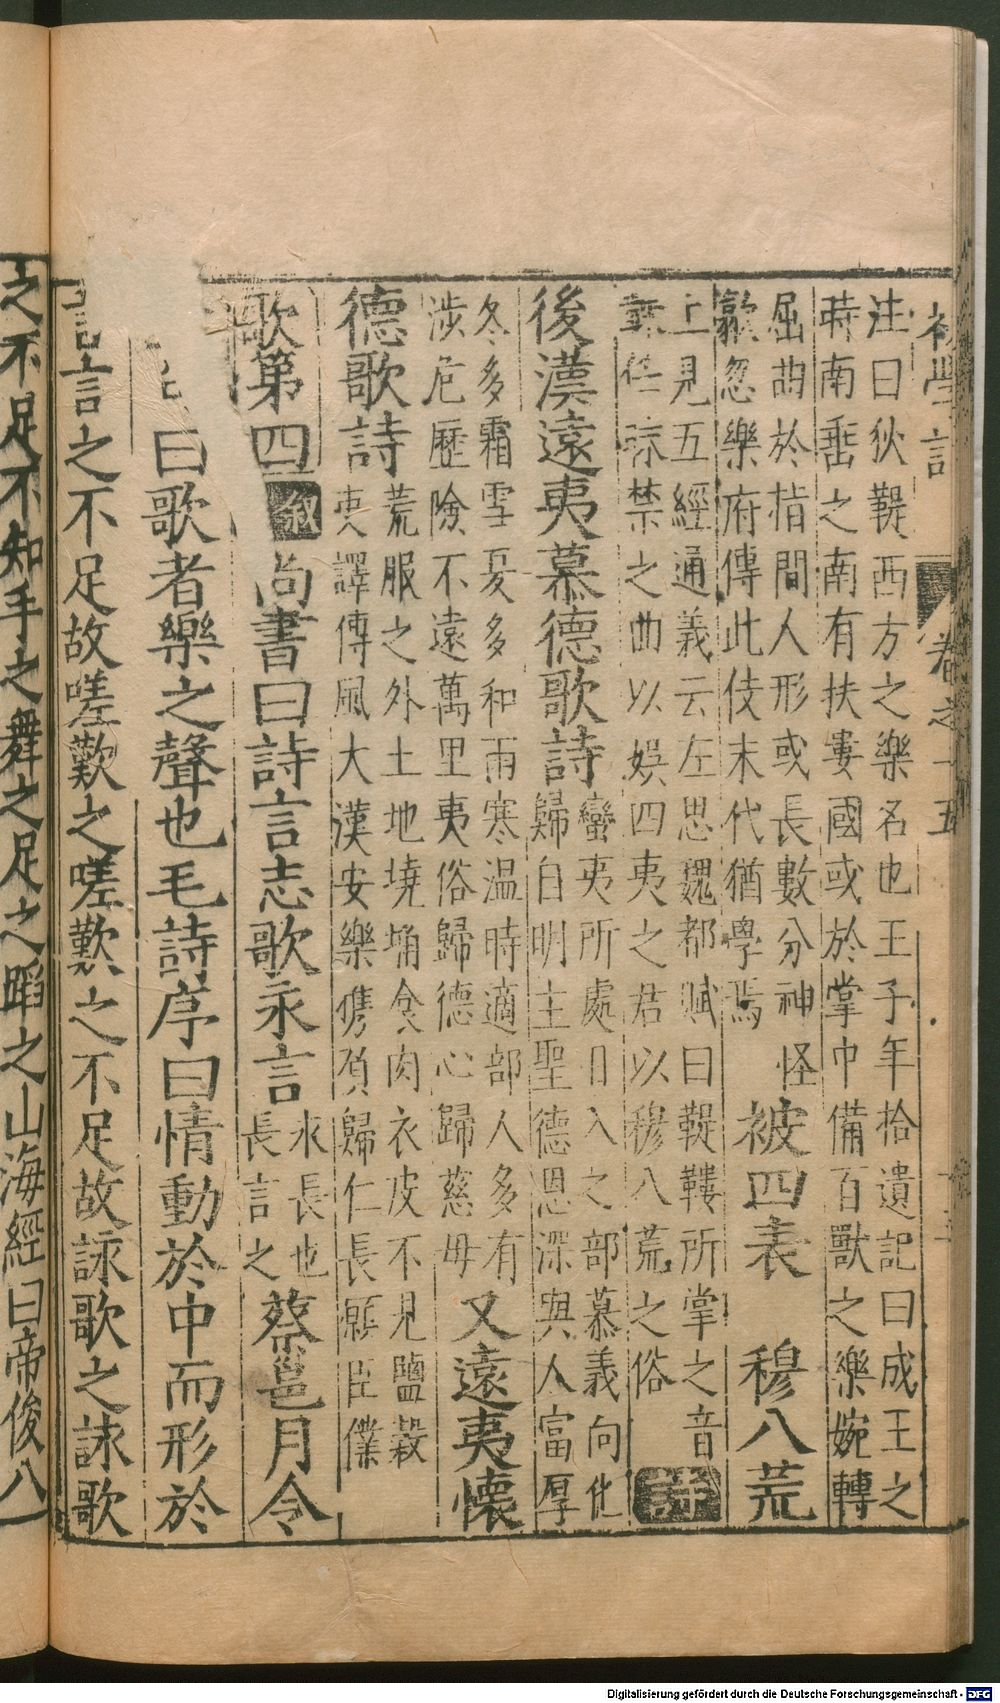 初學記 卷之十五
注曰狄鞮西方之樂名也王子年拾遺記曰成王之
時南垂之南有扶婁國或於掌中備百獸之樂婉轉
屈曲於指間人形或長數分神怪
歘忽樂府傳此伎末代猶學焉
被四表 穆八荒
上見五經通義云左思魏都賦曰鞮鞻所掌之音
韎任禁之曲以娛四夷之君以穆八荒之俗
詩
後漢遠夷慕德歌詩
蠻夷所處日入之部慕義向化
歸自明主聖德恩深與人富厚
冬多霜雪夏多和雨寒温時適部人多有
涉危歷險不遠萬里夷俗歸德心歸慈母
又遠夷懷
德歌詩
荒服之外土地墝埆食肉衣皮不見鹽穀
夷譯傳風大漢安樂攜負歸仁長願臣僕
歌第四
叙
尚書曰詩言志歌永言
永長也
長言之
蔡邕月令
曰歌者樂之聲也毛詩序曰情動於中而形於
言言之不足故嗟歎之嗟歎之不足故詠歌之詠歌
之不足不知手之舞之足之蹈之山海經曰帝俊八
Digitalisierung gefördert durch die Deutsche Forschungsgemeinschaft - DFG